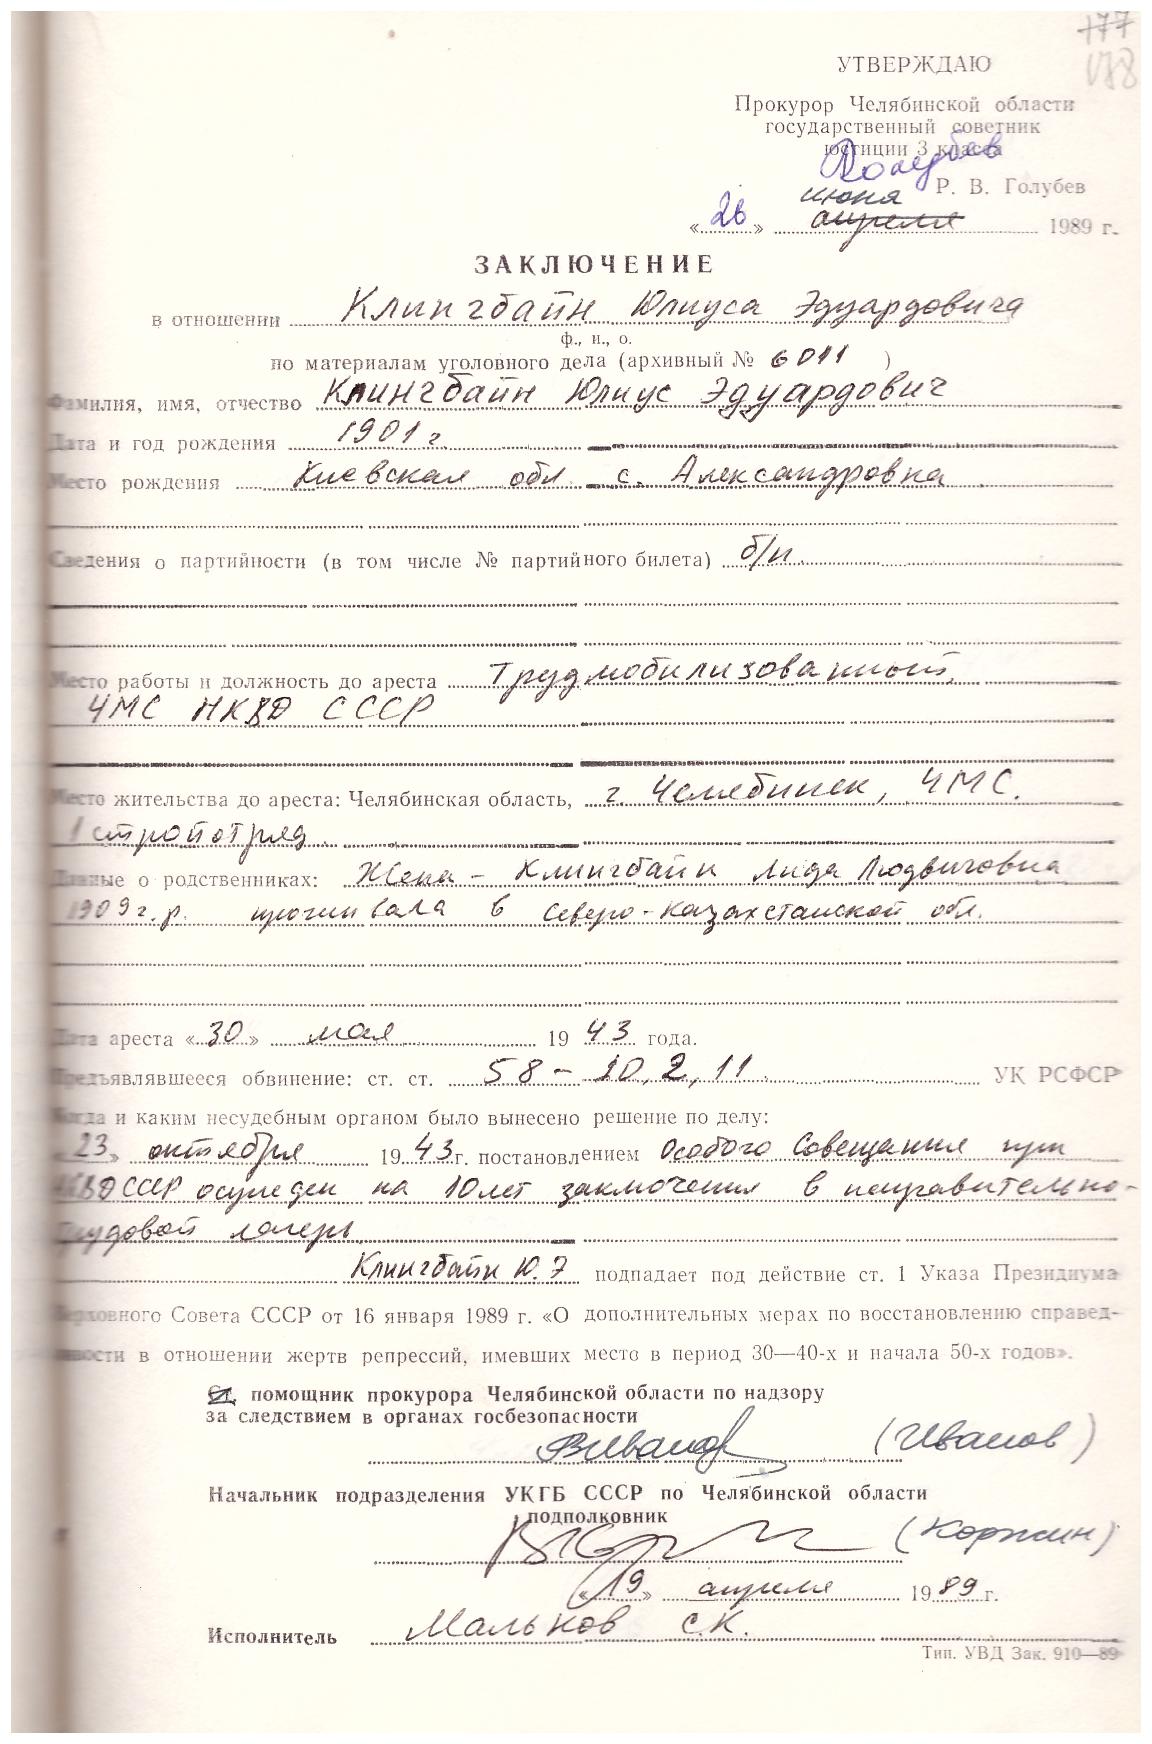 177
178
УТВЕРЖДАЮ
Прокурор Челябинской области
государственный советник
юстиции 3 класса
Голубев
Р. В. Голубев
июня
«26» апреля 1989 г.
ЗАКЛЮЧЕНИЕ
в отношении Клингбайн Юлиуса Эдуардовича
ф., и., о.
по материалам уголовного дела (архивный № 6011 )
Фамилия, имя, отчество Клингбайн Юлиус Эдуардович
Дата и год рождения 1901 г.
Место рождения Киевская обл. с. Александровка
Сведения о партийности (в том числе № партийного билета) б/п.
Место работы и должность до ареста Трудмобилизованный
ЧМС НКВД СССР
Место жительства до ареста: Челябинская область, г. Челябинск, ЧМС.
1 стройотряд.
Данные о родственниках: Жена - Клингбайн Лида Людвиговна
1909 г.р. проживала в Северо-Казахстанской обл.
Дата ареста «30» мая 1943 года.
Предъявлявшееся обвинение: ст. ст. 58-10, 2, 11. УК РСФСР
Когда и каким несудебным органом было вынесено решение по делу:
«23» октября 1943 г. постановлением Особого Совещания при
НКВД СССР осужден на 10 лет заключения в исправительно-
трудовой лагерь.
Клингбайн Ю.Э подпадает под действие ст. 1 Указа Президиума
Верховного Совета СССР от 16 января 1989 г. «О дополнительных мерах по восстановлению справед-
ливости в отношении жертв репрессий, имевших место в период 30—40-х и начала 50-х годов».
Ст. помощник прокурора Челябинской области по надзору
за следствием в органах госбезопасности
(Иванов)
Начальник подразделения УКГБ СССР по Челябинской области
подполковник
(Коржин)
«19» апреля 1989 г.
Исполнитель Мальков С.К.
Тип. УВД Зак. 910—89